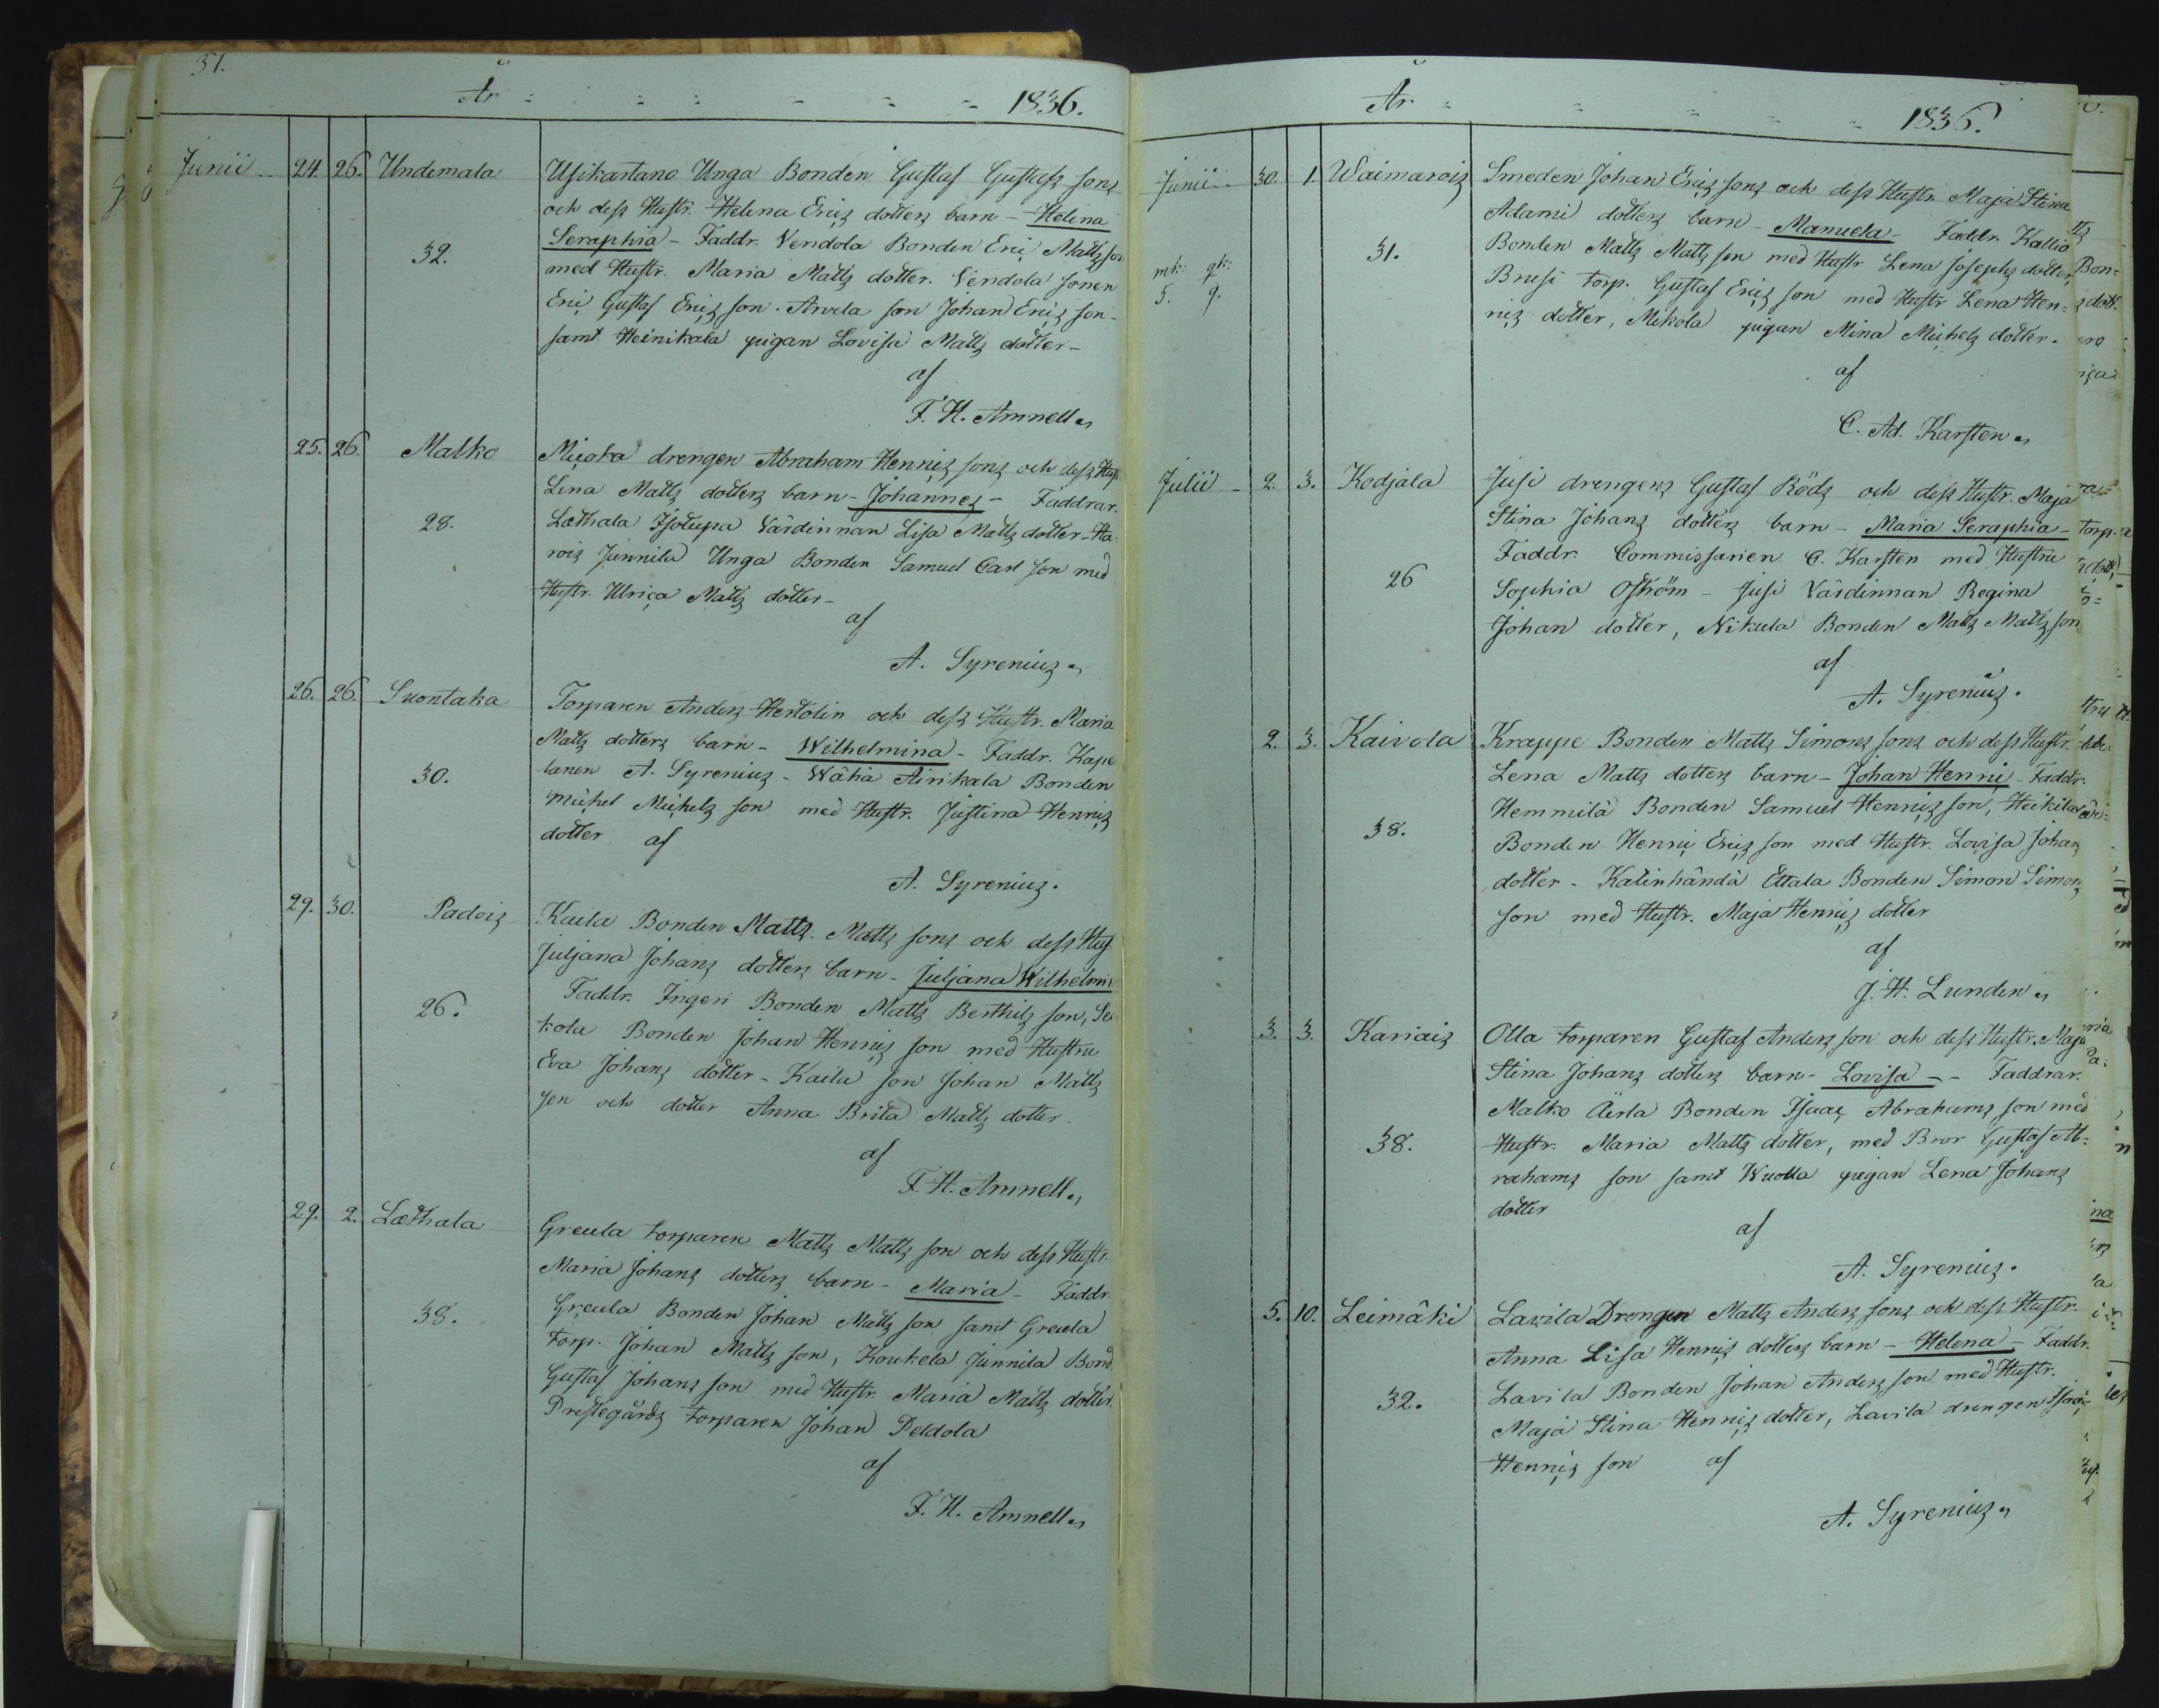 31.
År 1836.
Junii 24. 26. Undemala Usikartano Unga Bonden Gustaf Gustafs sons
och dess Hustr. Helena Erics dotters barn - Helena
Seraphia - Faddr. Vendola Bonden Eric Matts son
32.
med Hustr. Maria Matts dotter. Vendola sonen
Eric Gustaf Erics son. Arvela son Johan Erics son -
samt Heinikala pigan Lovisa Matts dotter -
af
F. H. Amnell
25. 26. Malko Micola drengen Abraham Henrics sons och dess Hust
Lena Matts dotters barn - Johannes - Faddrar.
28. Læthala Isotupa Värdinnan Lisa Matts dotter - Ha
rois Junnila Unga Bonden Samuel Carl son med
Hustr. Ulrica Matts dotter -
af
A. Syrenius
26. 26. Suontaka Torparen Anders Hertolin och dess Hustr. Maria
Matts dotters barn - Wilhelmina - Faddr. Kape
30. lanen A. Syrenius - Wähä Airikala Bonden
Michel Michels son med Hustr. Justina Henrics
dotter af
A. Syrenius.
29. 30. Padois Kaila Bonden Matts Matts sons och dess Hus
Juljana Johans dotters barn - Juljana Wilhelmi
26. Faddr. Ingeri Bonden Matts Berthils son, Se
kola Bonden Johan Henrics son med Hustru
Eva Johans dotter - Kaila son Johan Matts
son och dotter Anna Brita Matts dotter.
af
F. H. Amnell
29. 2. Læthala Greula torparen Matts Matts son och dess Hustr.
Maria Johans dotters barn - Maria - Faddr.
38. Greula Bonden Johan Matts son samt Greula
torp. Johan Matts son, Koukela Junnila Bond
Gustaf Johans son med Hustr. Maria Matts dotter.
Prestegårds torparen Johan Peldola
af
F. H. Amnell
År 1836.
Junii 30. 1. Waimarois Smeden Johan Erics sons och dess Hustr. Maja Stina
Adami dotters barn - Manuela - Faddr. Kallio
31. Bonden Matts Matts son med Hustr Lena Josephs dotter,
mk: qk:
5. 9.
Brusi torp. Gustaf Erics son med Hustr Lena Hen-
rics dotter, Mikola pigan Mina Michels dotter.
af
C. Ad. Karsten
Julii 2. 3. Kodjala Jusi drengens Gustaf Röds och dess Hustr. Maja
Stina Johans dotters barn - Maria Seraphia -
Faddr. Commissarien C. Karsten med Hustru
26 Sophia Öström - Jusi Värdinnan Regina
Johan dotter, Nikula Bonden Matts Matts son
af
A. Syrenius.
2. 3. Kaivola Krappe Bonden Matts Simons sons och dess Hustr.
Lena Matts dotters barn - Johan Henric - Faddr.
Hemmilä Bonden Samuel Henrics son, Heikila
38. Bonden Henric Erics son med Hustr. Lovisa Johans
dotter - Katinhändä Ettala Bonden Simon Simons
son med Hustr. Maja Henrics dotter
af
J. H. Lunden
3. 3. Kariais Olla torparen Gustaf Anders son och dess Hustr. Maja
Stina Johans dotters barn - Lovisa - - Faddrar.
Malko Äerla Bonden Isaac Abrahams son med
38. Hustr. Maria Matts dotter, med Bror Gustaf Ab-
rahams son samt Wuolla pigan Lena Johans
dotter
af
A. Syrenius.
5. 10. Leimäki Lavila Drengen Matts Anders sons och dess Hustr.
Anna Lisa Henrics dotters barn - Helena - Faddr.
32. Lavila Bonden Johan Anders son med Hustr.
Maja Stina Henrics dotter, Lavila drengen Isac
Henrics son af
A. Syrenius